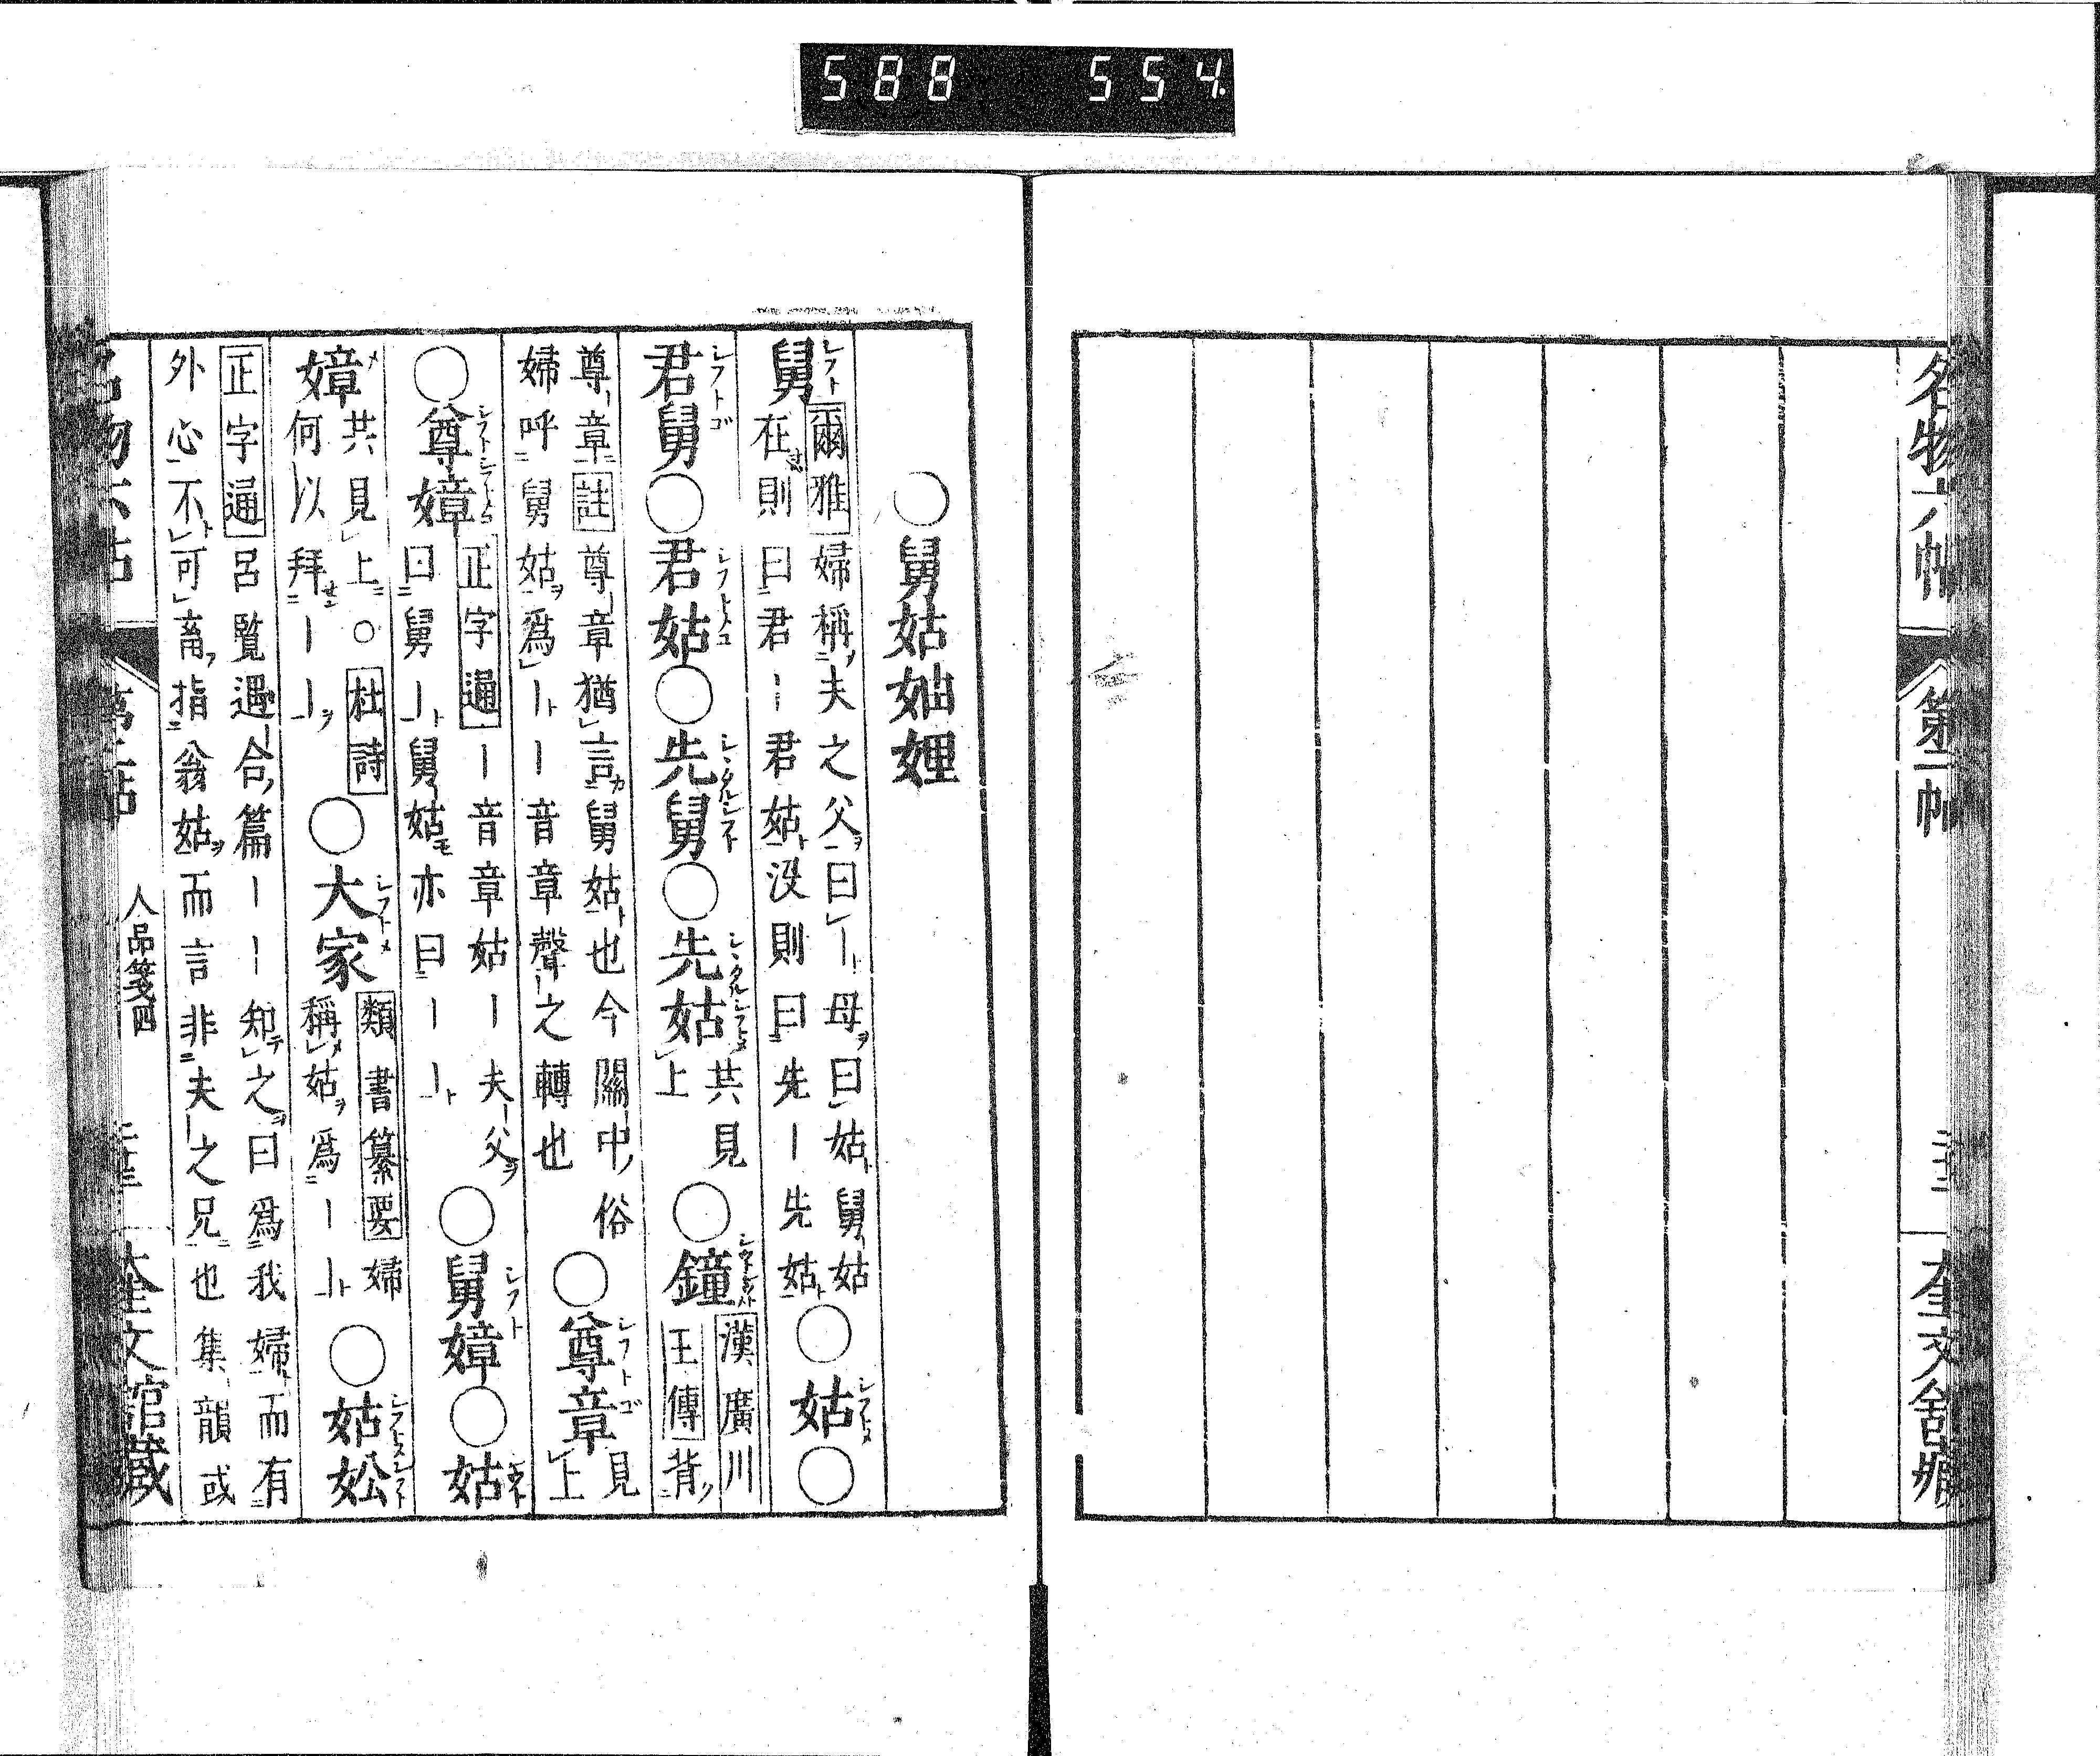 588 554
名物六帖
第二帖
奎文舘藏
○舅姑妯娌
舅 爾雅 婦稱夫之父曰丨母曰姑舅姑
在則曰君丨君姑没則曰先丨先姑 ○姑○
君舅○君姑○先舅○先姑 共見
上 ○鐘 漢廣川
王傳 背
尊章 註 尊章猶言舅姑也今關中俗
婦呼舅姑爲丨丨音章聲之轉也 ○尊章 見
上
○尊嫜 正字通 丨音章姑丨夫父
曰舅丨舅姑亦曰丨丨 ○舅嫜○姑
嫜 共見上○杜詩
何以拜丨丨 ○大家 類書纂要 婦
稱姑爲丨丨 ○姑妐
正字通 呂覽遇合篇丨丨知之曰爲我婦而有
外心不可畜指翁姑而言非夫之兄也集韻或
人品箋四
奎文舘藏